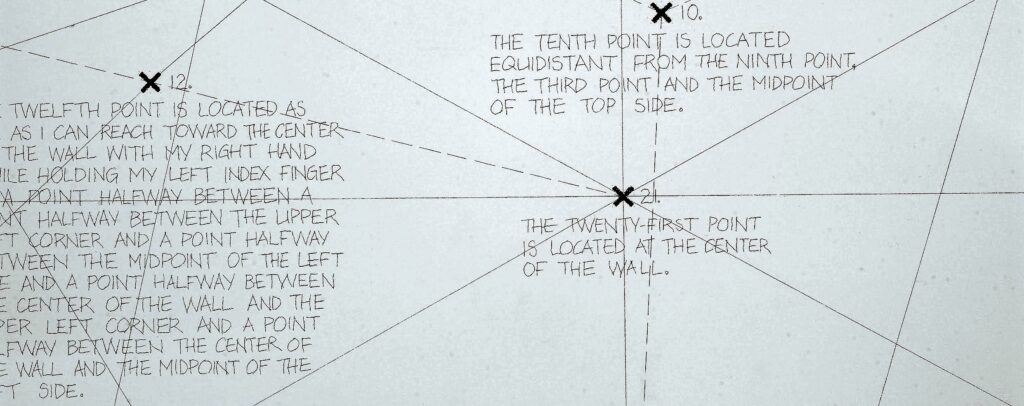 10.
THE TENTH POINT IS LOCATED
EQUIDISTANT FROM THE NINTH POINT,
THE THIRD POINT AND THE MIDPOINT
OF THE TOP SIDE.
12.
TWELFTH POINT IS LOCATED AS
AS I CAN REACH TOWARD THE CENTER
THE WALL WITH MY RIGHT HAND
ILE HOLDING MY LEFT INDEX FINGER
A POINT HALFWAY BETWEEN A
NT HALFWAY BETWEEN THE UPPER
FT CORNER AND A POINT HALFWAY
TWEEN THE MIDPOINT OF THE LEFT
E AND A POINT HALFWAY BETWEEN
E CENTER OF THE WALL AND THE
PER LEFT CORNER AND A POINT
LFWAY BETWEEN THE CENTER OF
E WALL AND THE MIDPOINT OF THE
FT SIDE.
21.
THE TWENTY-FIRST POINT
IS LOCATED AT THE CENTER
OF THE WALL.